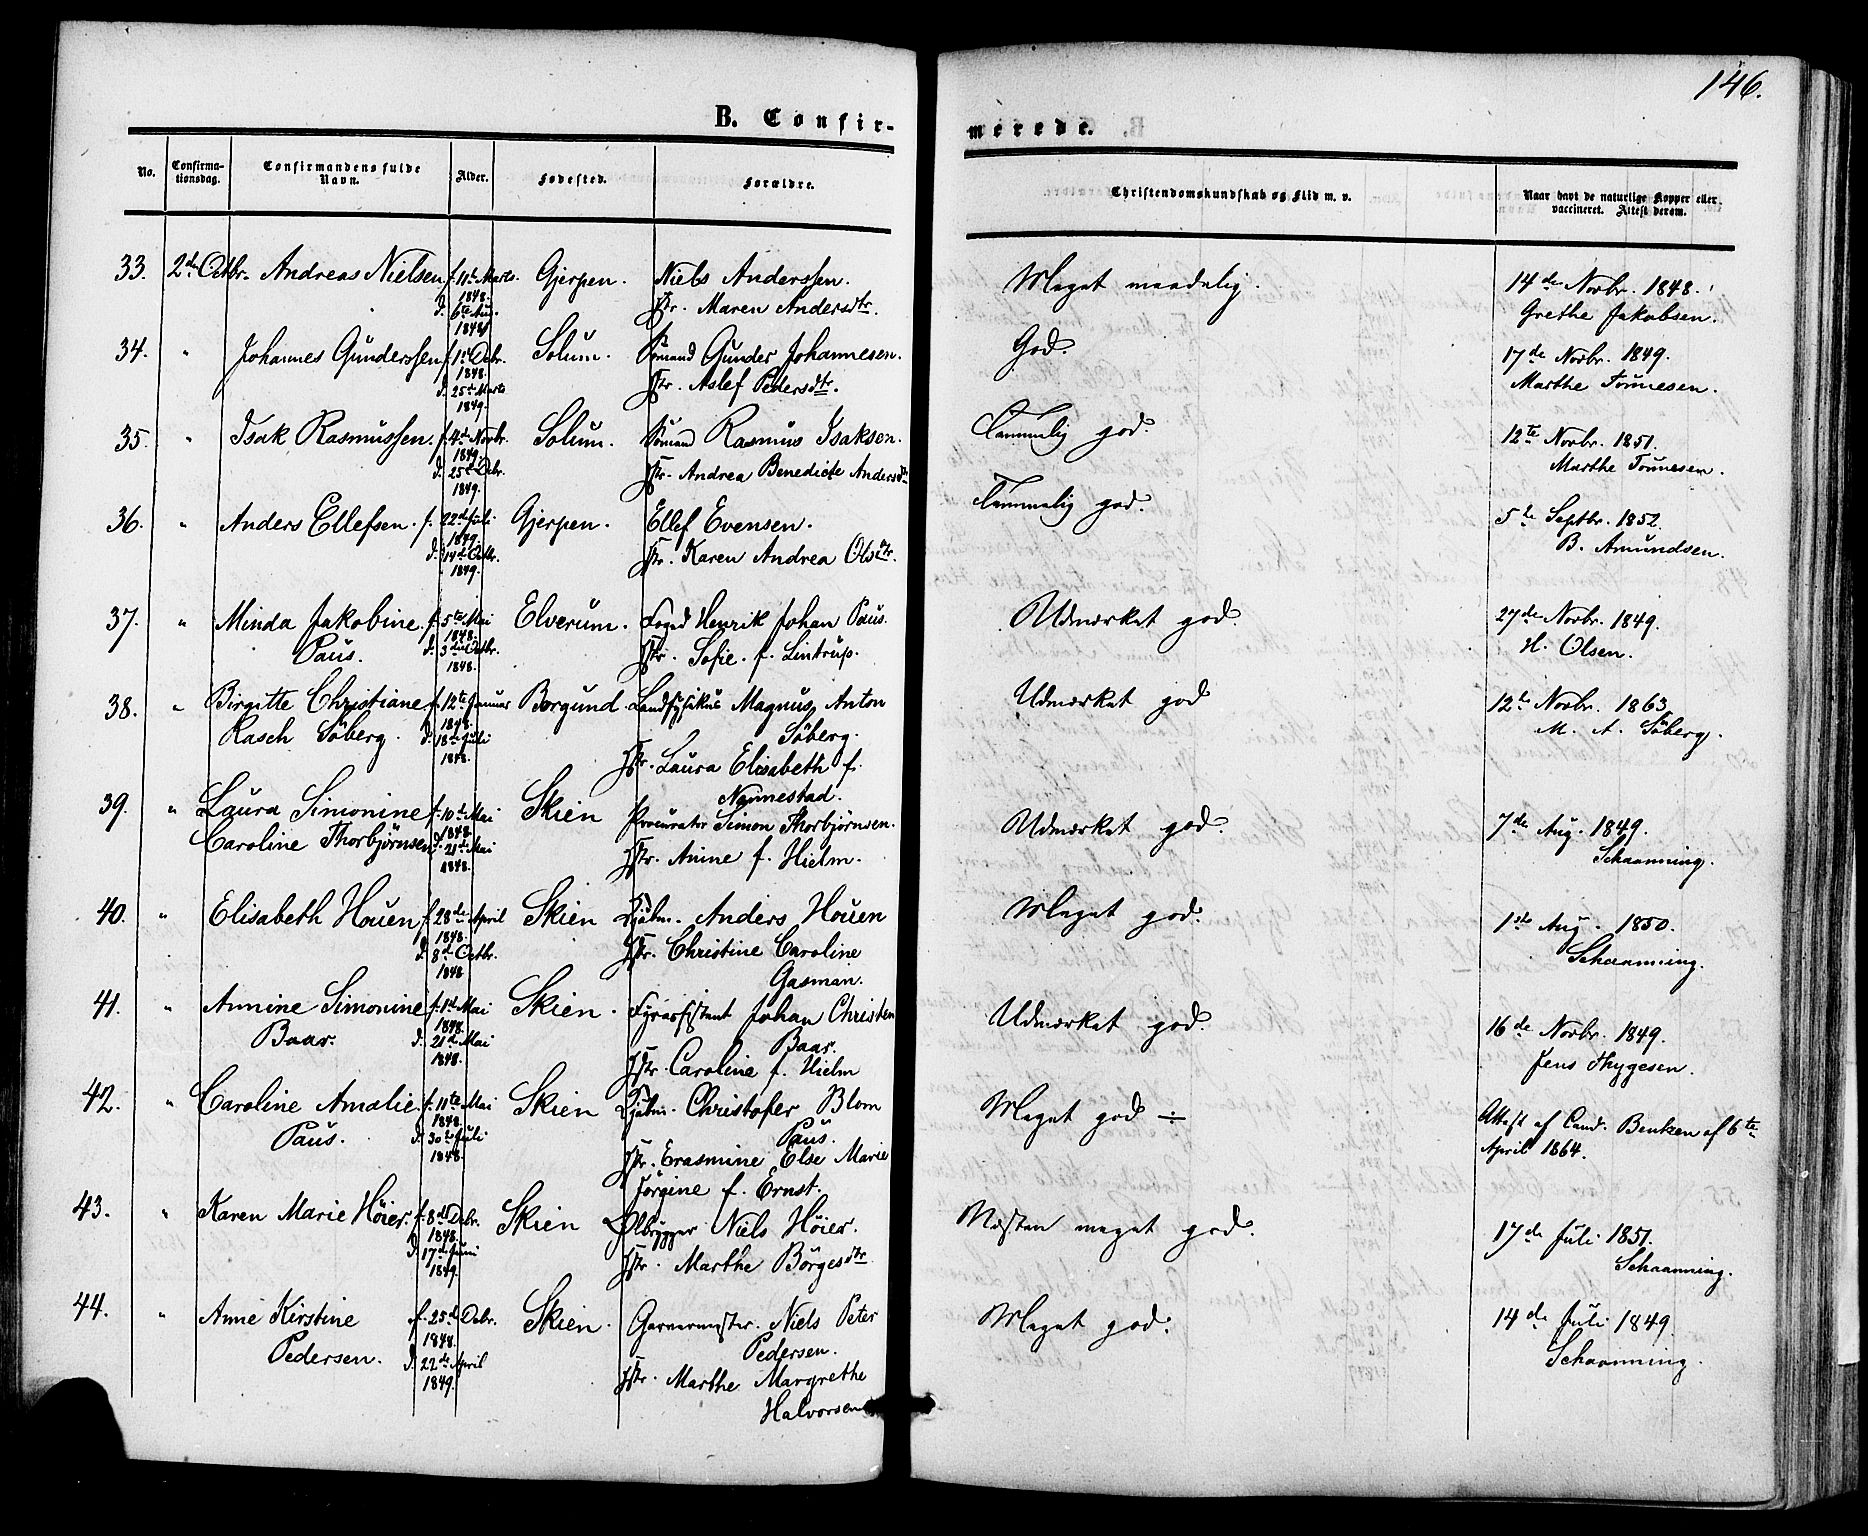 146.
B. Confir-
merede.
No.
Confirma-
tionsdag.
Confirmandens fulde
Navn.
Alder.
Fødested.
Forældre.
Christendomskundskab og Flid m. v.
Naar havt de naturlige Kopper eller
vaccineret. Attest derom.
33. 2den Octbr. Andreas Nielsen f. 11te Marts Gjerpen. Niels Anderssen. Meget maadelig. 14de Novbr. 1848.
1848.
d. 6te Aug. Hstr. Maren Andersdtr. Grethe Jakobsen.
1848.
34. " Johannes Gunderssen f. 1ste Debr. Solum. Sömand Gunder Johannesen. God. 17de Novbr. 1849.
1848.
d. 25de Marts Hstr. Aslef Pedersdtr. Marthe Tönnesen.
1849.
35. " Isak Rasmussen. f. 4de Novbr. Solum. Sömand Rasmus Isaksen. Temmelig god. 12te Novbr. 1851.
1849.
d. 25de Debr. Hstr. Andrea Benedicte Andersdtr Marthe Tönnesen.
1849.
36. " Anders Ellefsen. f. 22de Juli Gjerpen. Ellef Evensen. Temmelig god. 5te Septbr. 1852.
1849.
d. 14de Octbr. Hstr. Karen Andrea Olsdtr. B. Amundsen.
1849.
37. " Minda Jakobine f. 5te Mai Elverum. Foged Henrik Johan Paus. Udmærket god. 27de Novbr. 1849.
1848.
Paus. d. 3die Octbr. Hstr. Sofie. f. Lintrup. H. Olsen.
1848.
38. " Birgitte Christiane f. 12te Januar Borgund. Landfysikus Magnus Anton Udmærket god 12te Novbr. 1863
1848.
Rasch Söberg. d. 18de Juli Söberg. M. A. Söberg.
1848. Hstr. Laura Elisabeth f.
Nannestad.
39. " Laura Simonine f. 10de Mai Skien Procurator Simon Thorbjörnsen. Udmærket god. 7de Aug. 1849.
1848.
Caroline Thorbjørnsen d. 21de Mai Hstr. Anine f. Hielm. Schaanning.
1848.
40. " Elisabeth Houen f. 28de April Skien Kjöbm. Anders Houen Meget god. 1ste Aug. 1850.
1848.
d. 8de Octbr. Hstr. Christine Caroline Schaanning.
1848. Gasman.
41. " Annine Simonine f. 1ste Mai Skien. Fyrassistent Johan Christen Udmærket god. 16de Novbr. 1849.
1848.
Baar. d. 21de Mai Baar. Jens Thygesen.
1848. Hstr. Caroline f. Hielm
42. " Caroline Amalie f. 11te Mai Skien Kjöbm. Christofer Blom Meget god ÷ Attest af Cand. Benken af 6te
1848.
Paus. d. 30te Juli Paus. April 1864.
1848. Hstr. Erasmine Else Marie
Jörgine f. Ernst.
43. " Karen Marie Höier. f. 8de Debr. Skien Ølbrygger Niels Höier. Næsten meget god. 17de Juli 1851.
1848.
d. 17de Juni Hstr. Marthe Börgesdtr Schaanning.
1849.
44. " Anne Kirstine f. 25de Debr. Skien. Garvermester. Niels Peter Meget god. 14de Juli 1849.
1848.
Pedersen. d. 22de April Pedersen. Schaanning.
1849. Hstr. Marthe Margrethe
Halvorsen